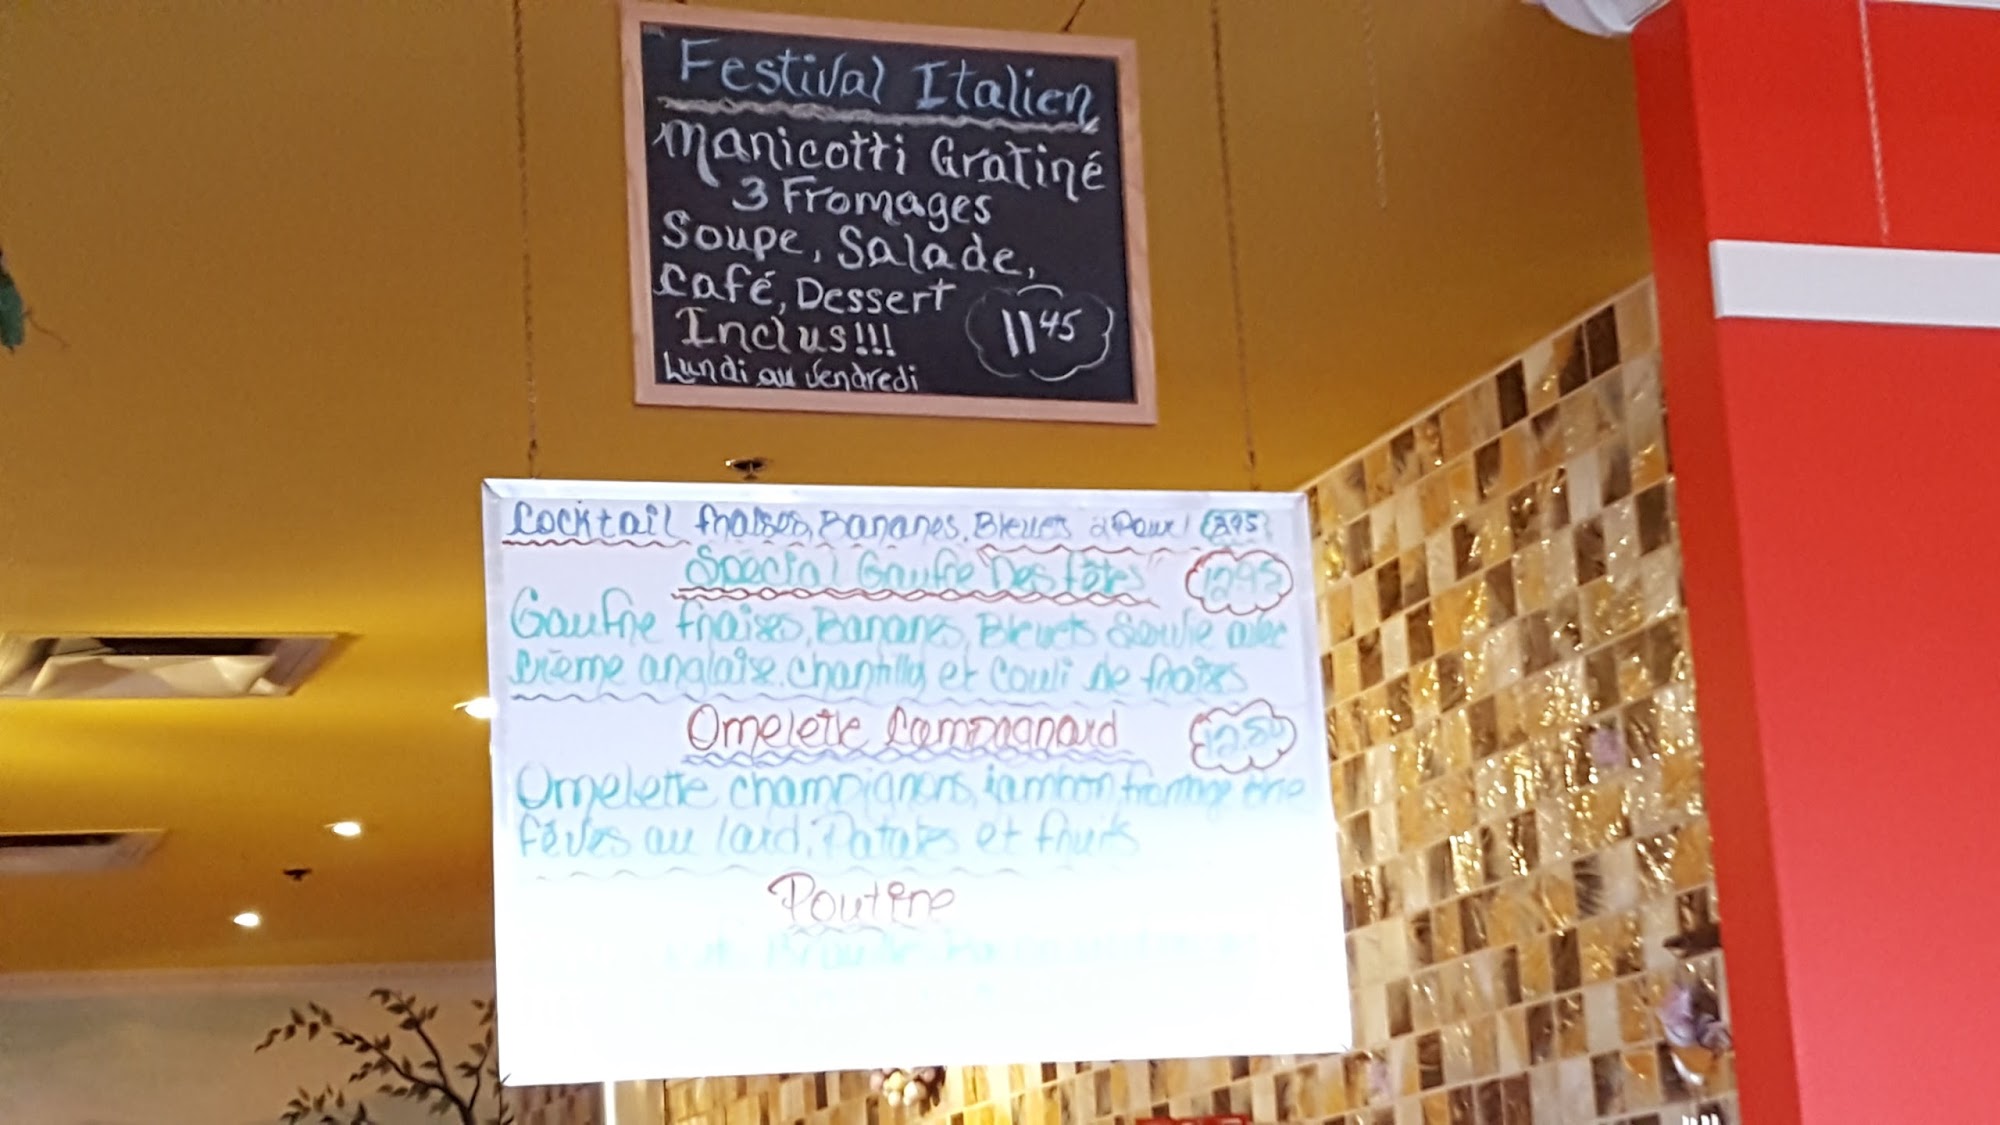 Festival Italien
Manicotti Gratiné
3 Fromages
Soupe, Salade,
Café, Dessert
Inclus!!! 11 45
Lundi au Vendredi
Cocktail fraises, Bananes, Bleuets 3.95
Spécial Gaufre "Des fêtes" 12.95
Gaufre fraises, Bananes, Bleuets Servie avec
crème anglaise, chantilly et Couli de fraises
Omelette Campagnard 12.50
Omelette champignons, jambon, fromage
fèves au lard, Patates et fruits
Poutine